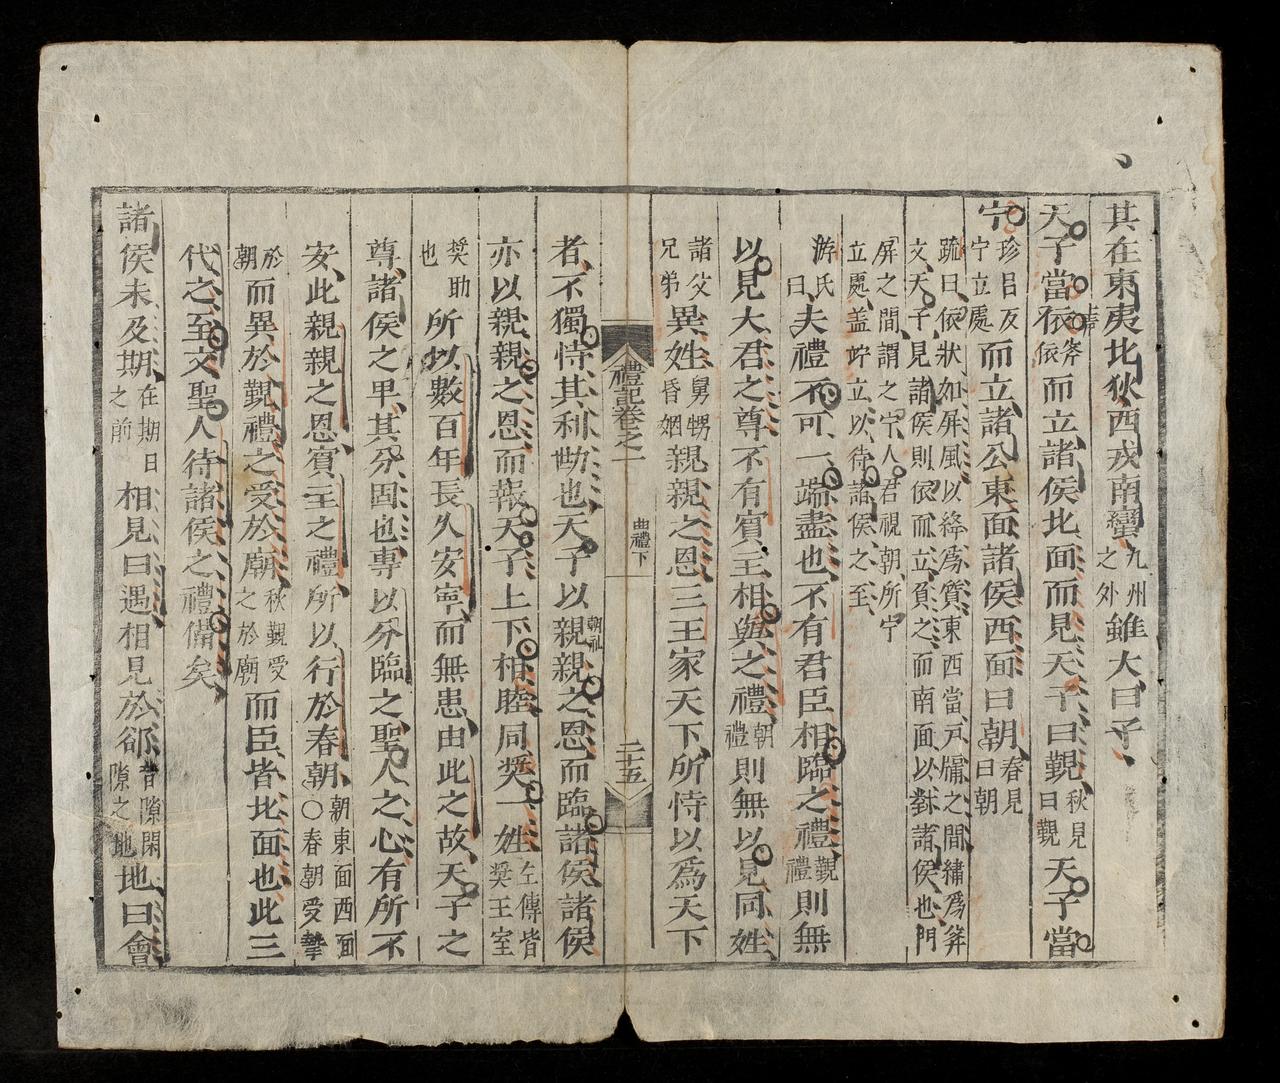 其在東夷北狄西戎南蠻九州之外雖大曰子
天子當依斧依而立諸侯北面而見天子曰覲秋見曰覲天子當
宁珍呂反宁立處而立諸公東面諸侯西面曰朝春見曰朝
疏曰依狀如屏風以絳爲質東西當戶牖之間繡爲斧
文天子見諸侯則依而立負之而南面以對諸侯也門
屏之間謂之宁人君視朝所宁
立處蓋竚立以待諸侯之至
游氏曰夫禮不可一端盡也不有君臣相臨之禮覲禮則無
以見大君之尊不有賓主相與之禮朝禮則無以見同姓
諸父兄弟異姓舅甥昏姻親親之恩三王家天下所恃以爲天下
禮記卷之一
曲禮下
二十五
者不獨恃其利勢也天子以親親之恩而臨諸侯諸侯
亦以親親之恩而報天子上下相睦同奬一姓左傳皆奬王室
奬助也所以數百年長久安寧而無患由此之故天子之
尊諸侯之卑其分固也專以分臨之聖人之心有所不
安此親親之恩賓主之禮所以行於春朝朝東面西面○春朝受摯
於朝而異於覲禮之受於廟秋覲受之於廟而臣皆北面也此三
代之至文聖人待諸侯之禮備矣
諸侯未及期在期日之前相見曰遇相見於郤音隙閒隙之地地曰會